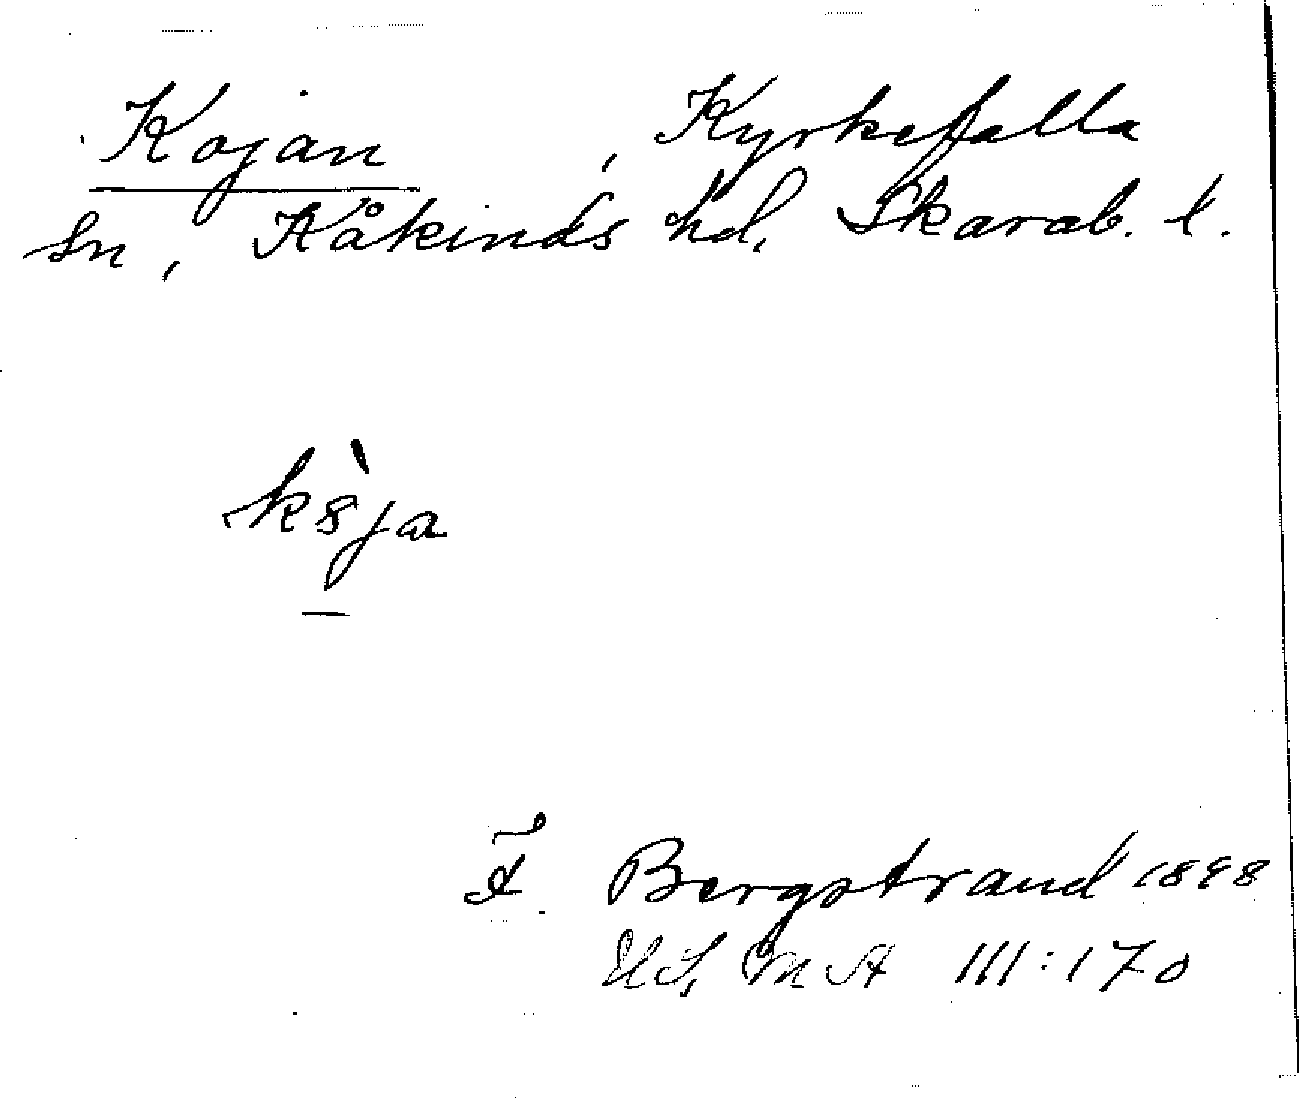 Kojan, Kyrkefalla
sn, Kåkinds hd, Skarab. l.
kòja
Bergstrand 1898
III:170